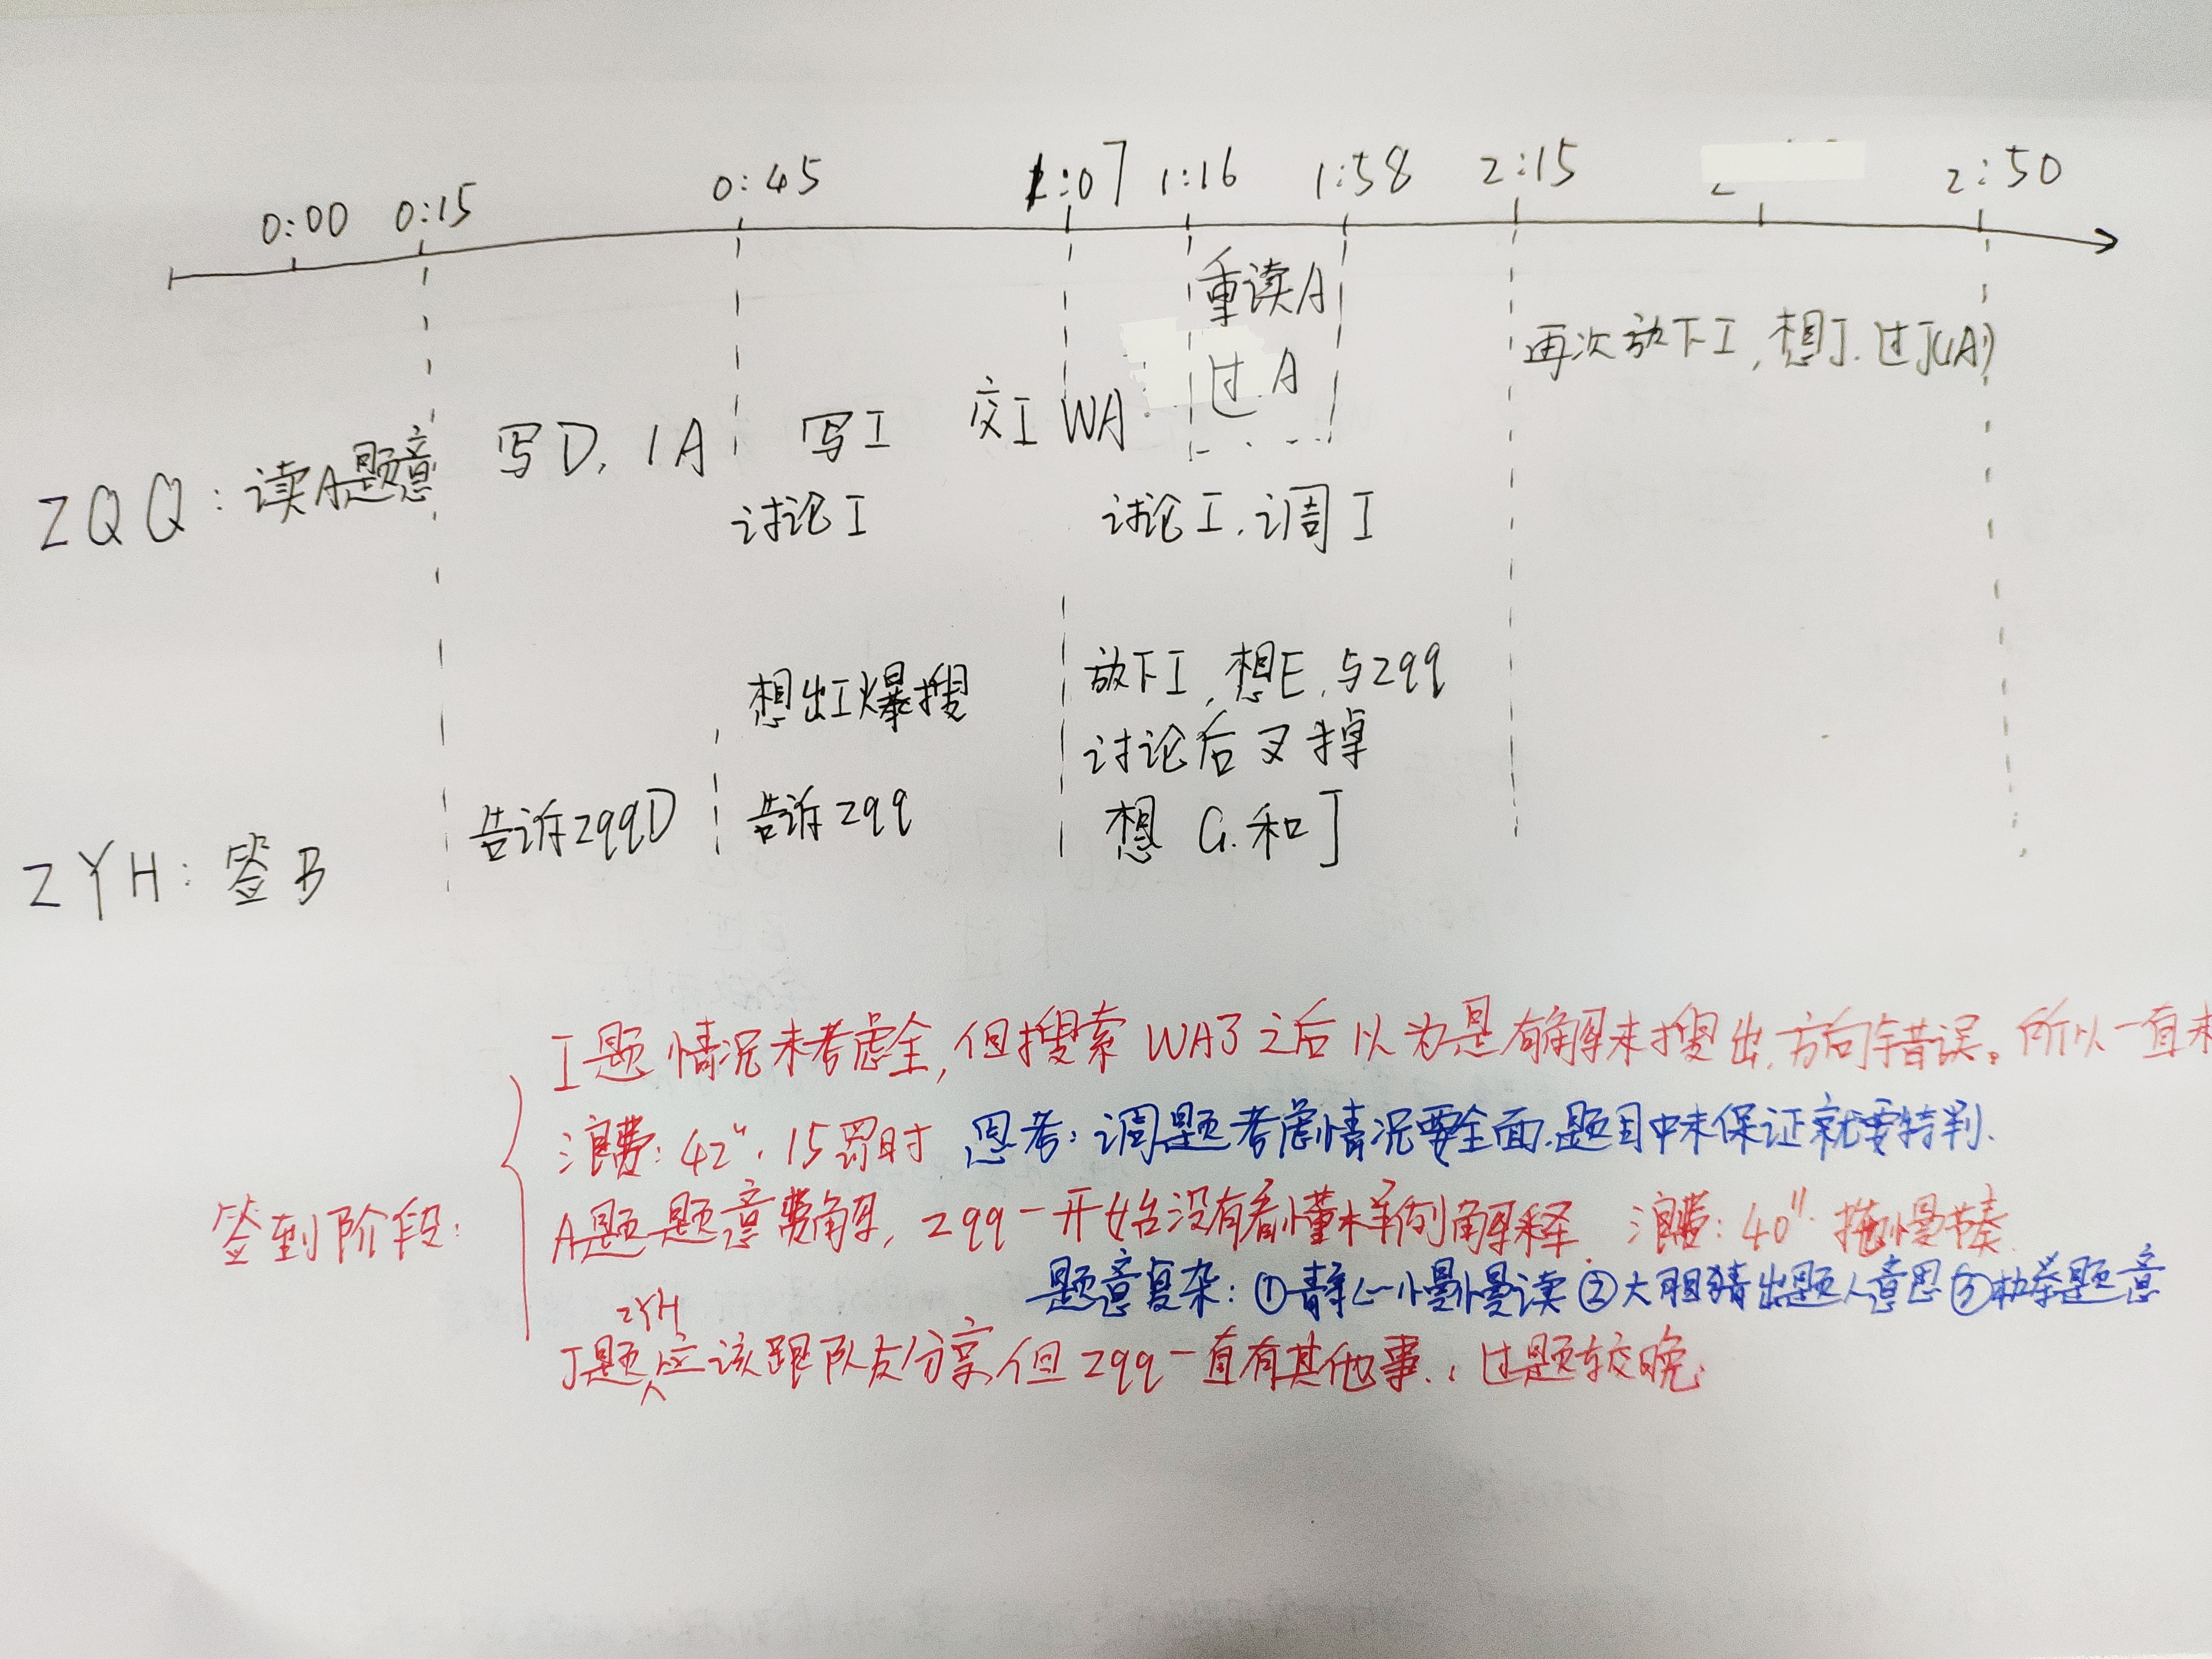 0:00 0:15 0:45 1:07 1:16 1:58 2:15 2:50
重读A
过A
再次放下I,想J.过J(1A)
ZQQ:读A题意 写D,1A 写I 交I WA
讨论I 讨论I.调I
想出I爆搜 放下I,想E,与zqq
讨论后叉掉
告诉zqqD 告诉zqq 想G.和J
ZYH:签B
I题情况未考虑全,但搜索WA了之后以为是有解未搜出,方向错误。所以一直未
浪费:42".15罚时 思考:调题考虑情况要全面.题目中未保证就要特判.
签到阶段:
A题题意费解,zqq一开始没有看懂样例解释. 浪费:40".拖慢节奏.
题意复杂:①静心慢慢读②大胆猜出题人意思③枚举题意
J题ZYH应该跟队友分享,但zqq一直有其他事.,过题较晚.